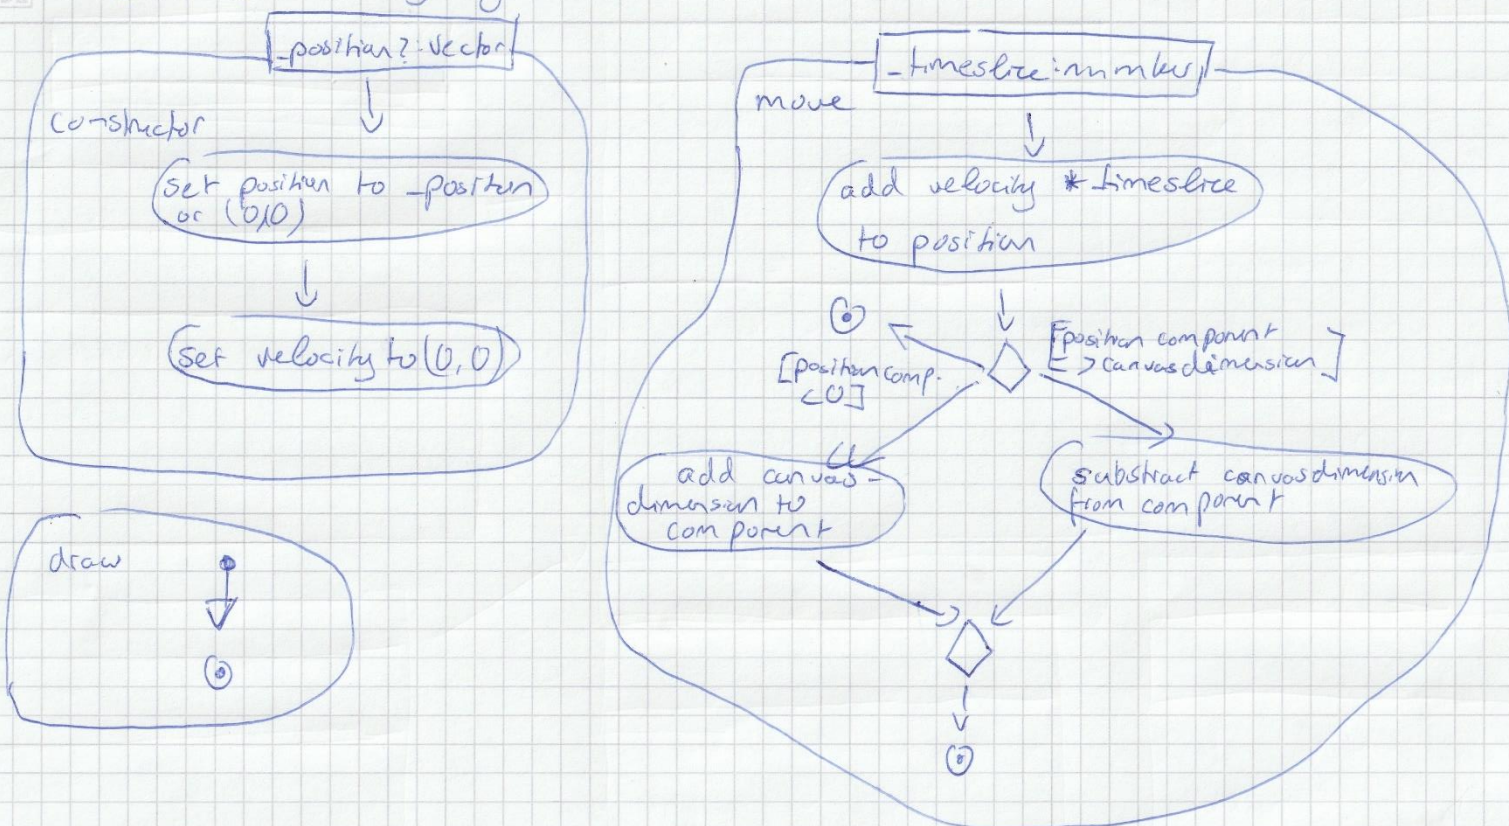 _position?:vector
constructor
set position to _position
or (0,0)
set velocity to (0,0)
draw
_timeslice:number
move
add velocity * _timeslice
to position
[position comp.
<0]
[position component
> canvasdimension]
add canvas-
dimension to
component
substract canvasdimension
from component